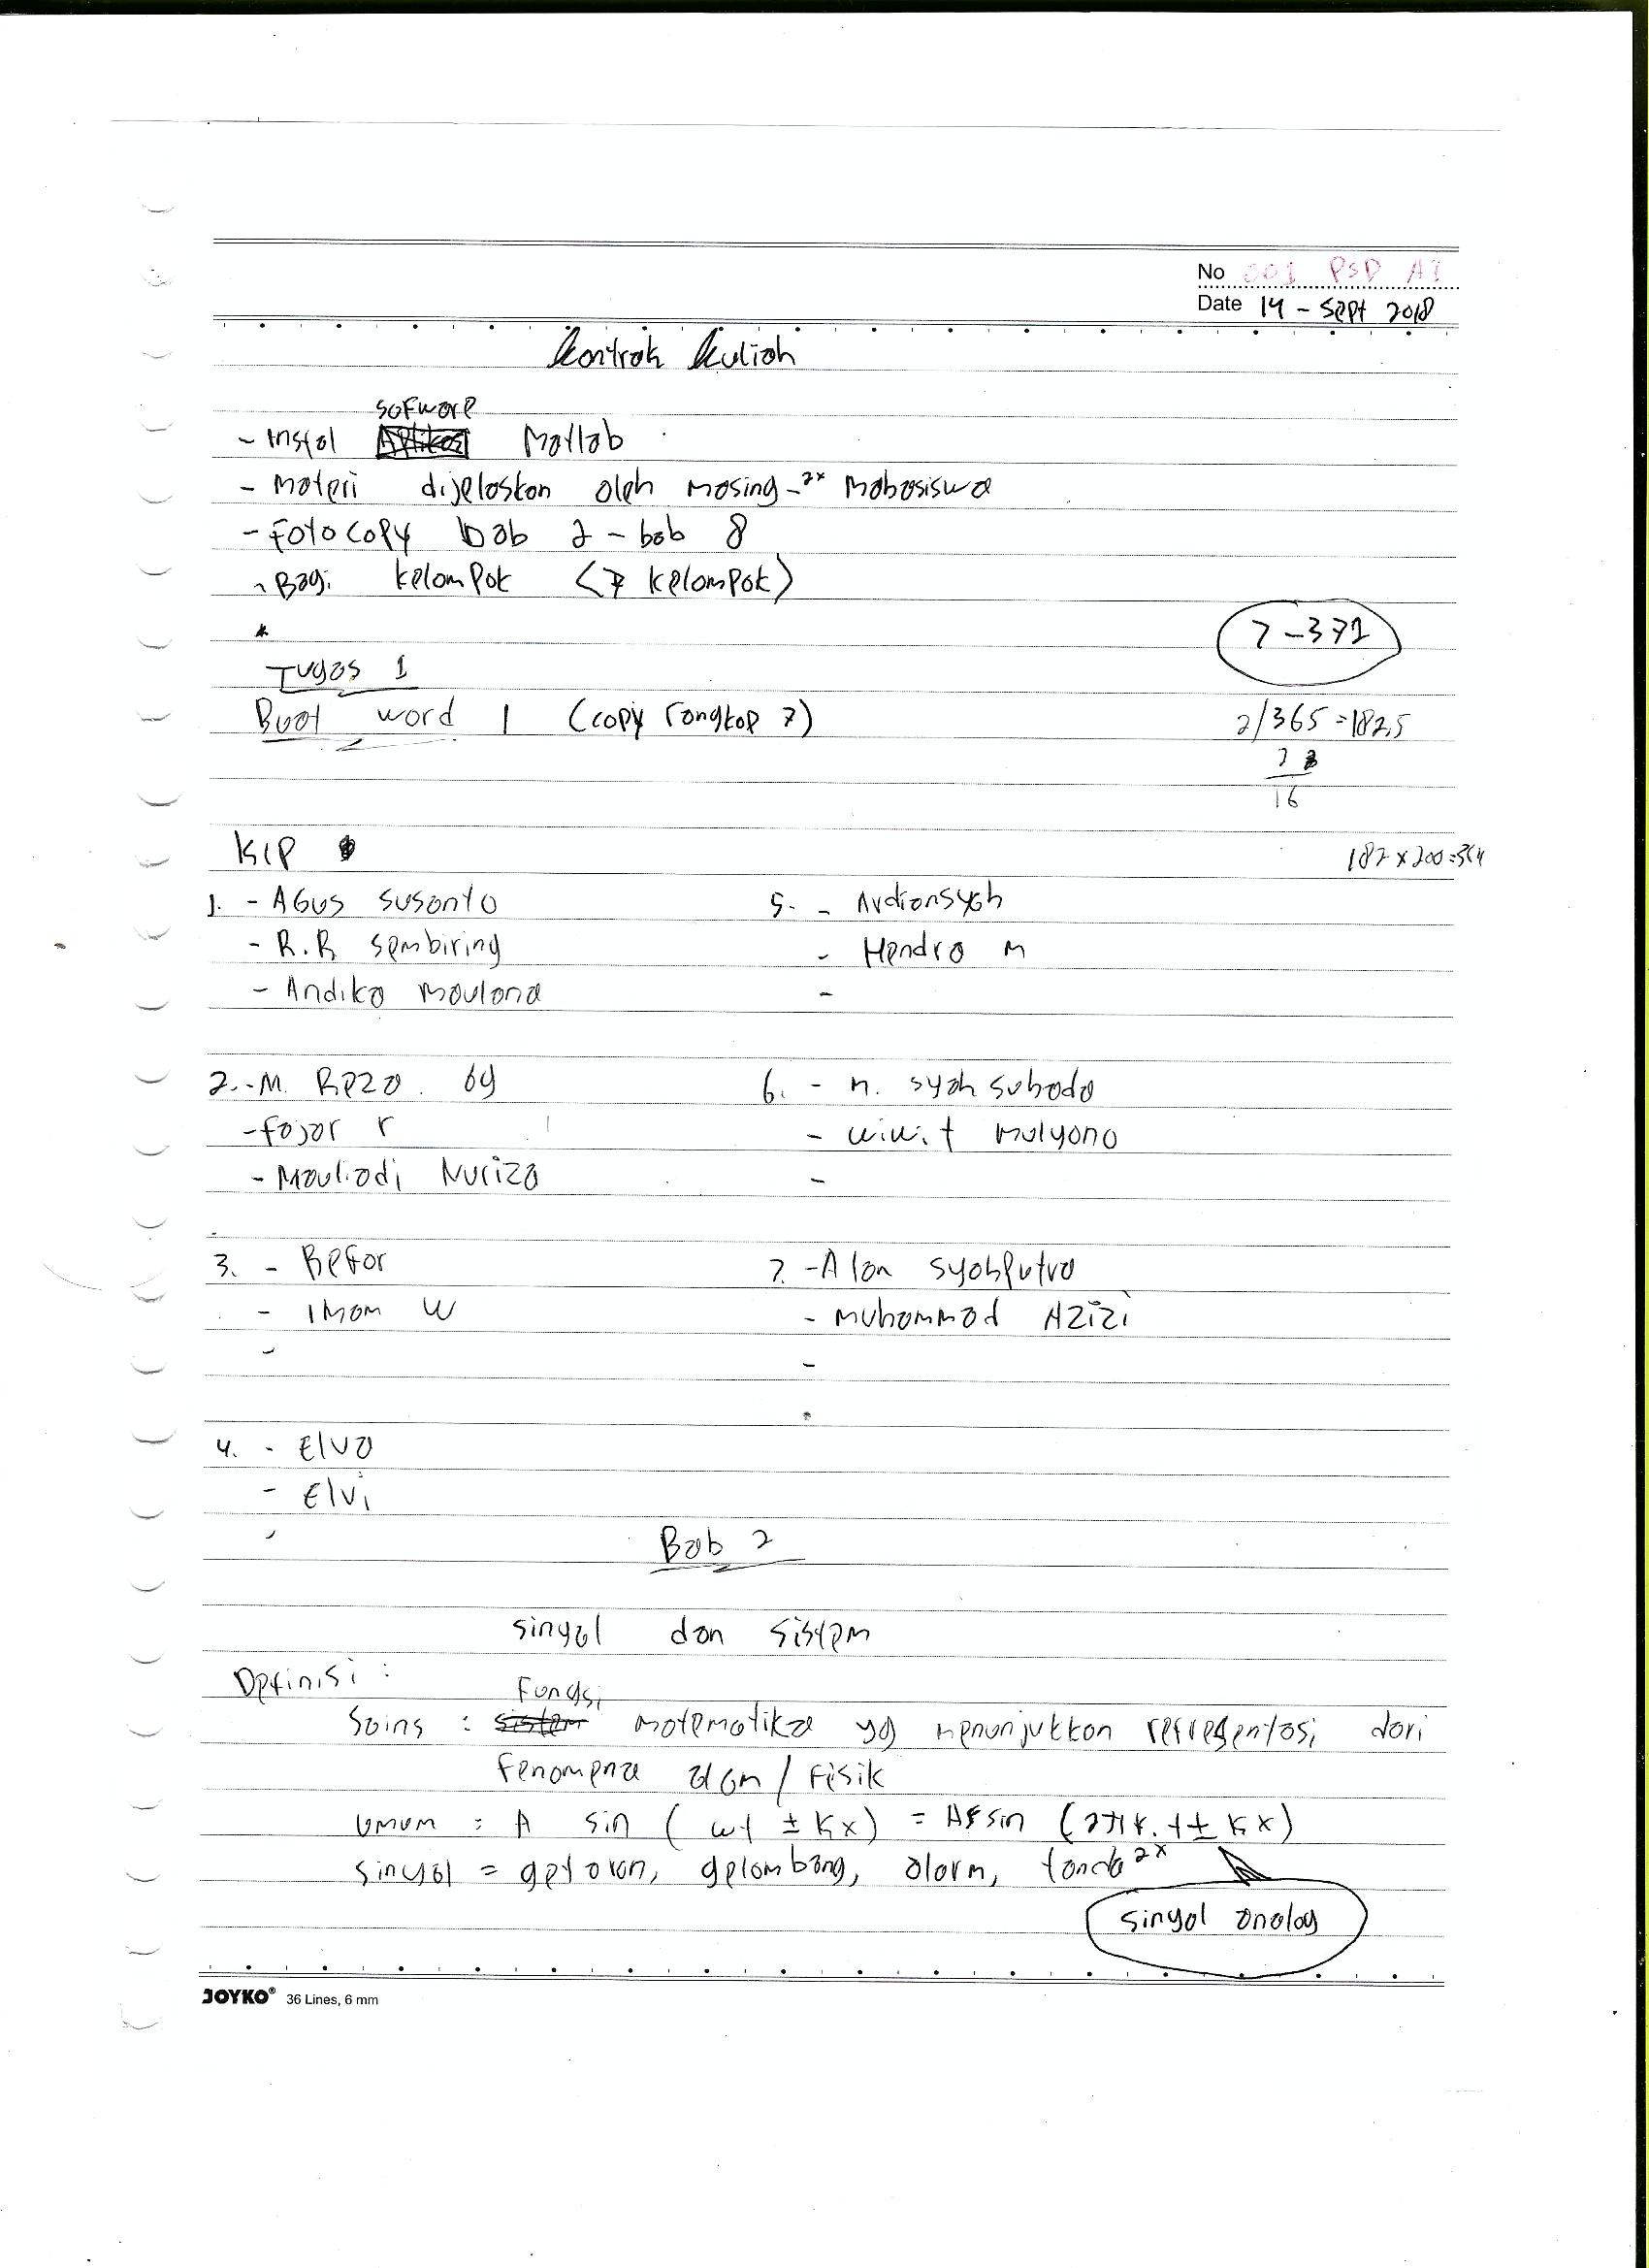 No 001 PSD A1
Date 14 - Sept 2018
Kontrak Kuliah
Sofware
- Instal Aplikasi Matlab
- Materi dijelaskan oleh masing-2x Mahasiswa
- Foto Copy bab 2 - bab 8
- Bagi kelompok (7 kelompok)
7 - 371
Tugas 1
Buat word 1 (copy rangkap 7)
2/365 = 182,5
16
182 x 200 = 364
KLP
1. - Agus Susanto
- R.R Sembiring
- Andika Maulana
5. - Ardiansyah
- Hendra M
-
2. - M. Reza
- Fajar r
- Mauliadi Nuriza
6. - M. Syah Subada
- Wiwit Mulyono
-
3. - Befor
- Imam W
-
7. - Alan Syahputra
- Muhammad Azizi
-
4. - Elva
- Elvi
-
Bab 2
Sinyal dan Sistem
Definisi :
Fungsi
Sains : sistem matematika yg menunjukkan refresentasi dari
Fenomena alam / Fisik
Umum : A sin (wt ± Kx) = A sin (2πf.t ± Kx)
Sinyal = getaran, gelombang, alarm, tanda 2x
Sinyal analog
JOYKO® 36 Lines, 6 mm